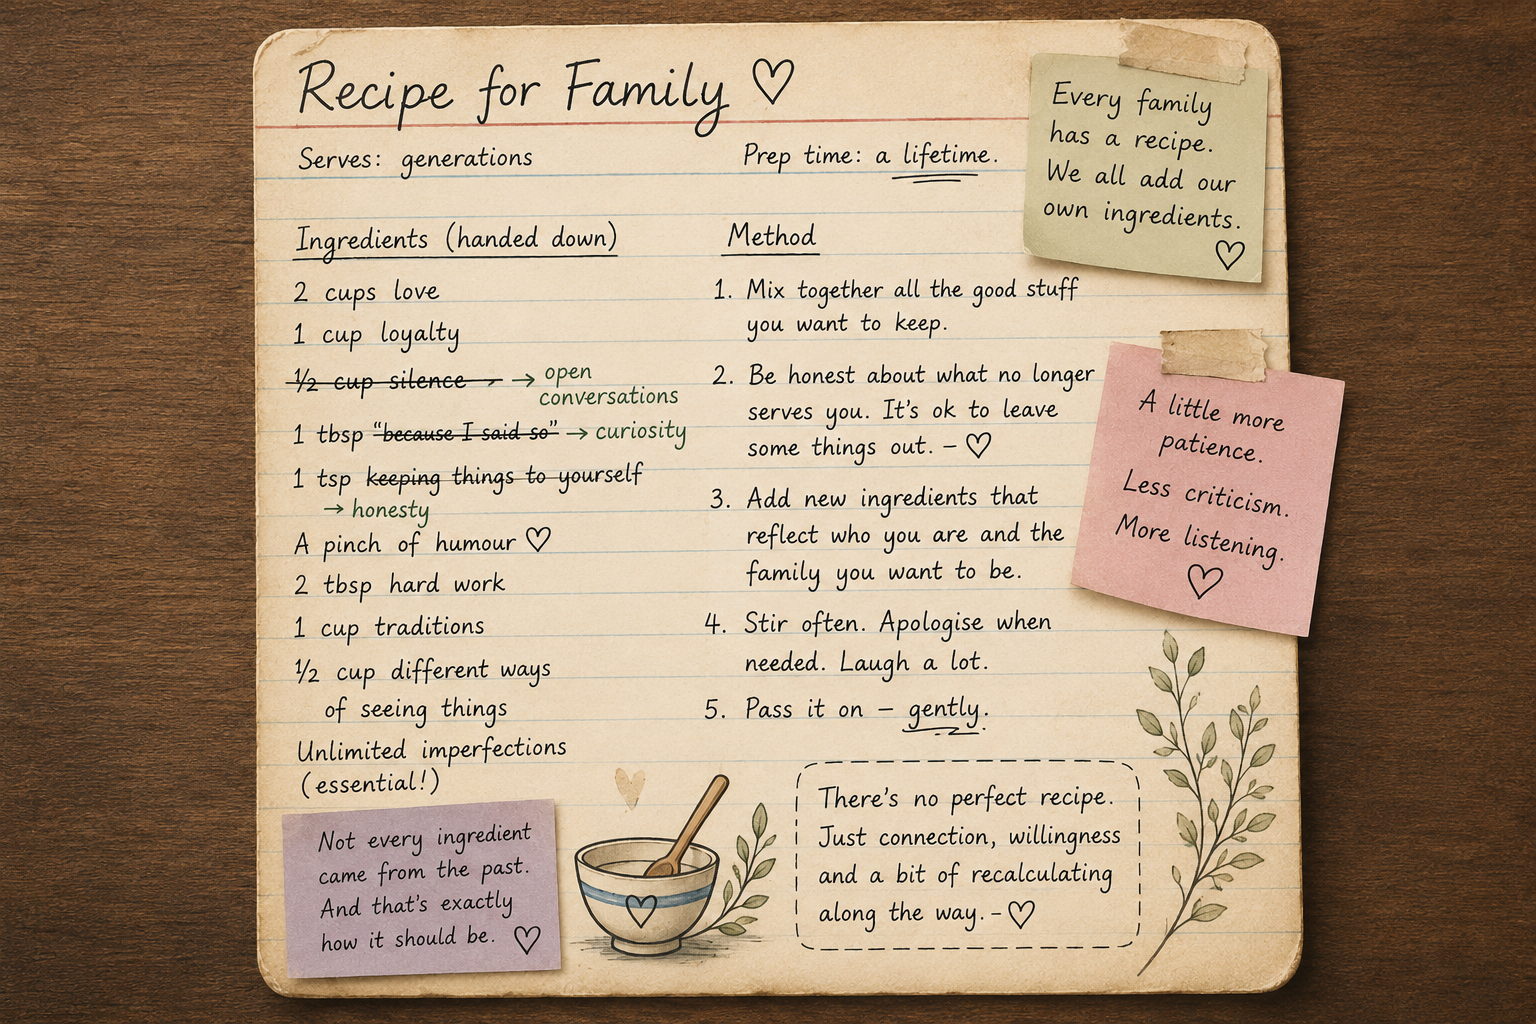 Recipe for Family ♡
Serves: generations
Prep time: a lifetime.
Ingredients (handed down)
2 cups love
1 cup loyalty
½ cup silence → open
conversations
1 tbsp “because I said so” → curiosity
1 tsp keeping things to yourself
→ honesty
A pinch of humour ♡
2 tbsp hard work
1 cup traditions
½ cup different ways
of seeing things
Unlimited imperfections
(essential!)
Method
1. Mix together all the good stuff
you want to keep.
2. Be honest about what no longer
serves you. It's ok to leave
some things out. – ♡
3. Add new ingredients that
reflect who you are and the
family you want to be.
4. Stir often. Apologise when
needed. Laugh a lot.
5. Pass it on – gently.
Every family
has a recipe.
We all add our
own ingredients.
♡
A little more
patience.
Less criticism.
More listening.
♡
Not every ingredient
came from the past.
And that's exactly
how it should be. ♡
There's no perfect recipe.
Just connection, willingness
and a bit of recalculating
along the way. – ♡